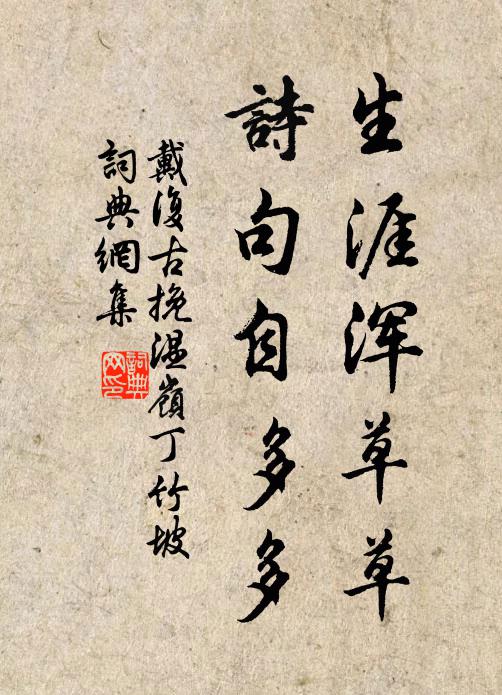 生涯浑草草
詩句自多多
戴復古挽温嶺丁竹坡
詞典網集
詞典网印